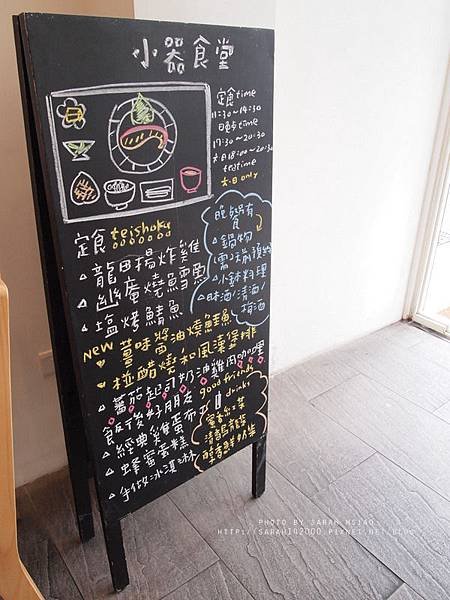 小器食堂
定食time
11:30~14:30
晚餐time
17:30~20:30
六日18:00~20:30
teatime
六.日 only
定食 teishoku
龍田楊炸雞
幽庵燒鱈魚
塩烤鯖魚
NEW 薑味醬油燒鮭魚
椪醋燒和風漢堡排
蕃茄起司奶油雞肉咖哩
晚餐有
鍋物
小鉢料理
清酒
梅酒
飯後好朋友
經典雞蛋布丁
蜂蜜蛋糕
手做冰淇淋
good friends
drinks
PHOTO BY SARAH HSIAO
HTTP://SARAH102000.PIXNET.NET/BLOG